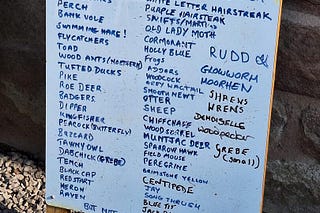 PERCH
BANK VOLE
SWIMMING HARE!
FLYCATCHERS
TOAD
WOOD ANTS (NORTHERN)
TUFTED DUCKS
PIKE
ROE DEER
BADGERS
DIPPER
KINGFISHER
PEACOCK (BUTTERFLY)
BUZZARD
TAWNY OWL
DABCHICK (GREBE)
TENCH
BLACK CAP
REDSTART
HERON
RAVEN
BUT NOT
WHITE LETTER HAIRSTREAK
PURPLE HAIRSTREAK
SWIFTS/MARTINS
OLD LADY MOTH
CORMORANT
HOLLY BLUE
FROGS
ADDERS
WOODCOCK
GREY WAGTAIL
SMOOTH NEWT
OTTER
SHEEP
CHIFFCHAFF
WOOD SORREL
MUNTJAC DEER
SPARROW HAWK
FIELD MOUSE
PEREGRINE
BRIMSTONE YELLOW
CENTIPEDE
JAY
SONG THRUSH
BLUE TIT
RUDD
GLOWWORM
MOORHEN
SHREWS
WRENS
DEMOISELLE
WOODPECKER
GREBE
(small)